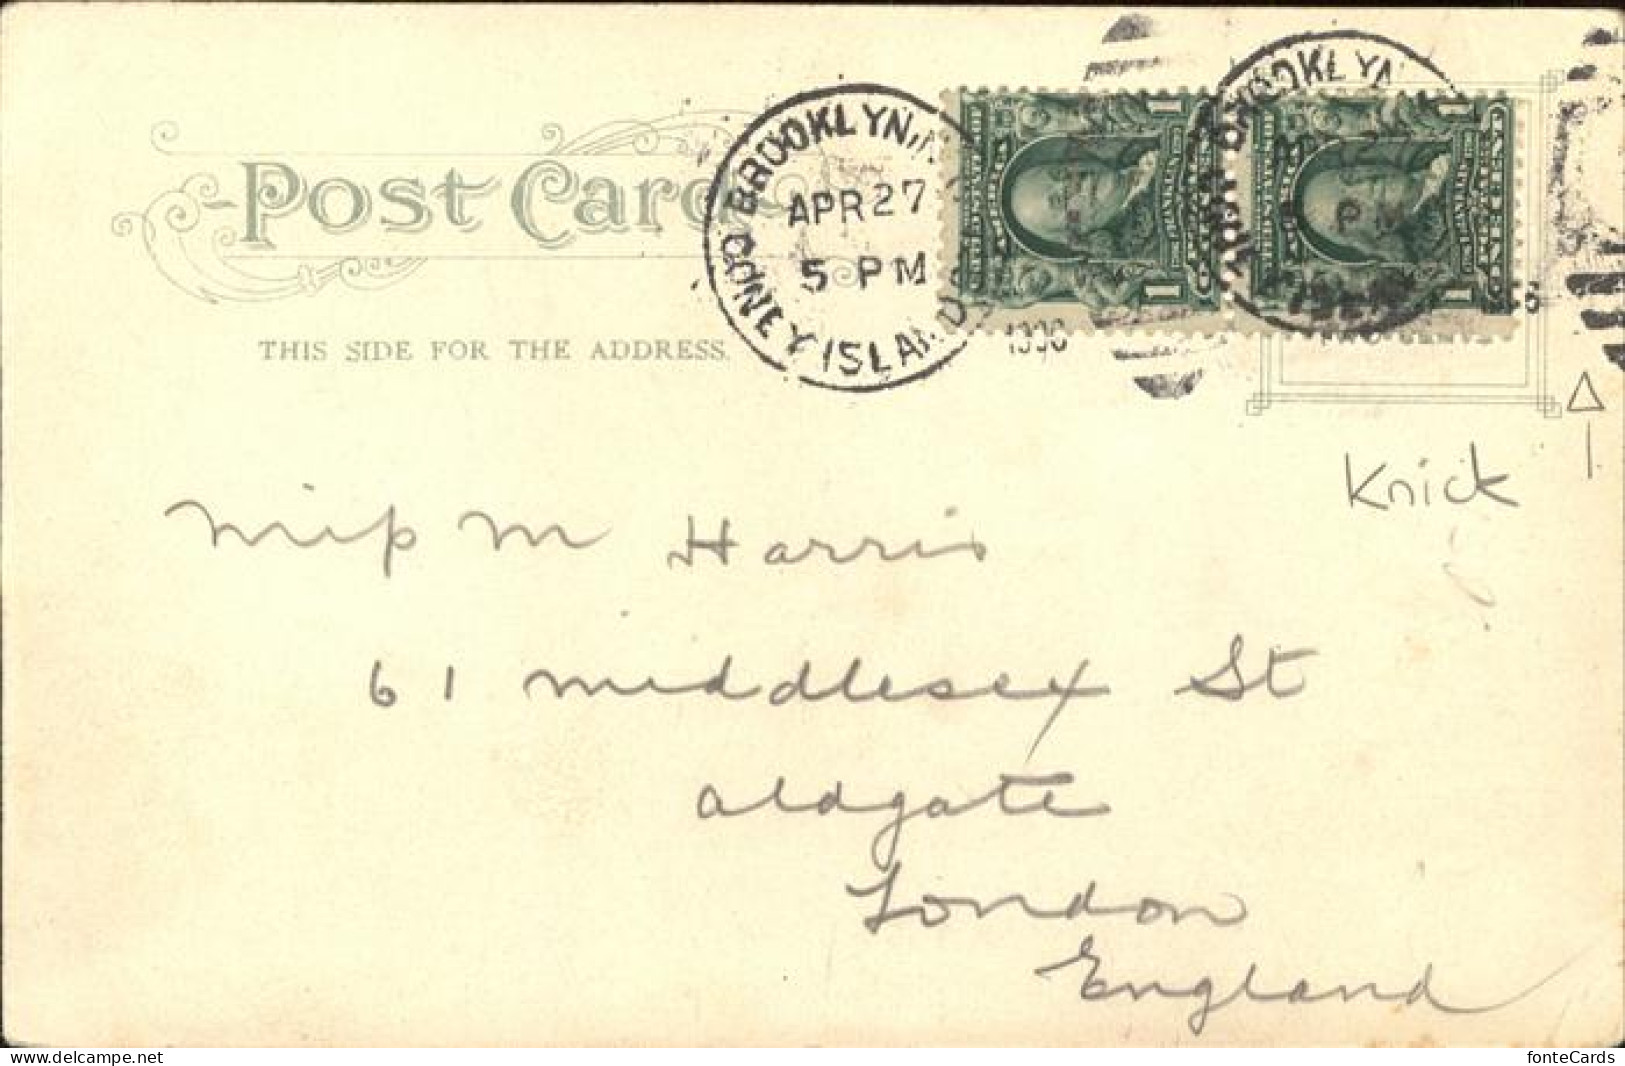 Post Card
THIS SIDE FOR THE ADDRESS.
BROOKLYN, N.
CONEY ISLAND
APR 27
5 PM
1906
BROOKLYN
1
1
Knick
Miss M Harris
61 Middlesex St
Aldgate
London
England
http://www.delcampe.net
fonteCards